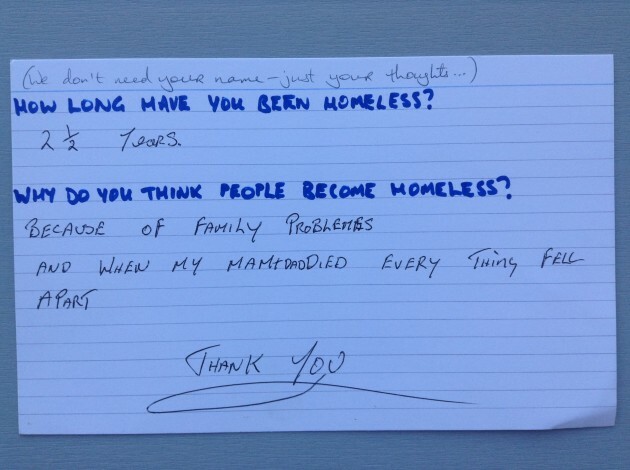 (We don't need your name - just your thoughts...)
HOW LONG HAVE YOU BEEN HOMELESS?
2 ½ Years.
WHY DO YOU THINK PEOPLE BECOME HOMELESS?
BECAUSE OF FAMILY PROBLEMES
AND WHEN MY MAM+DAD DIED EVERY THING FELL
APART
THANK YOU